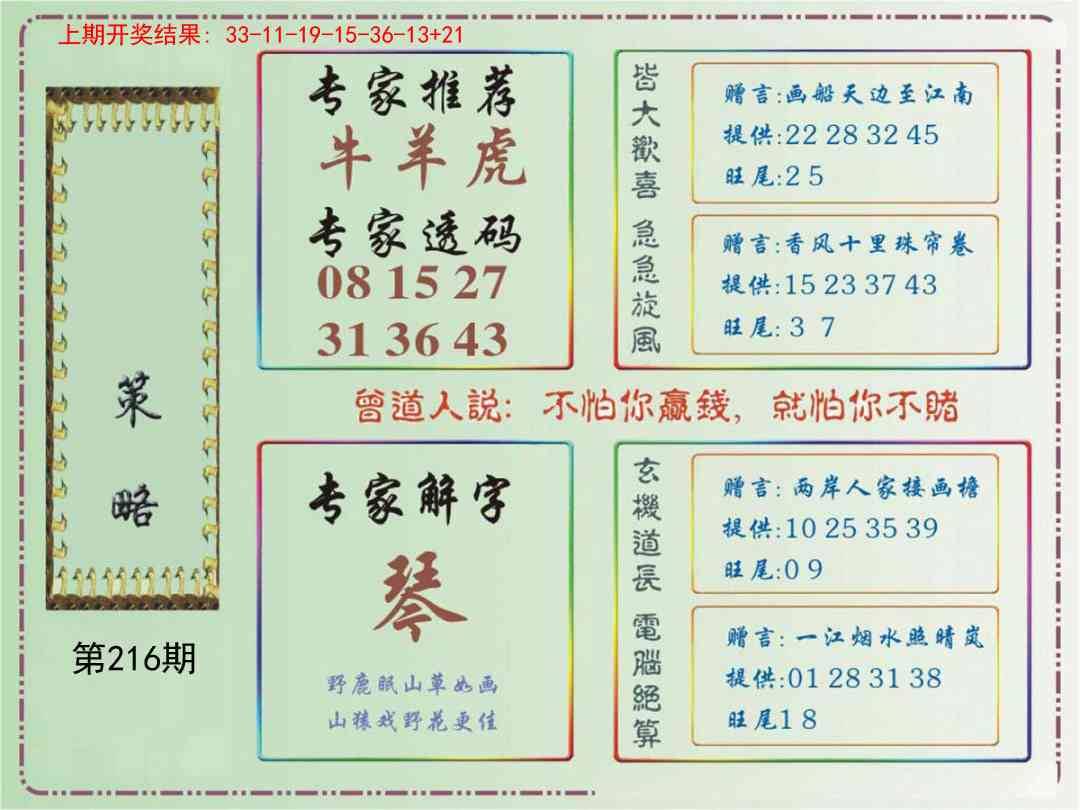 上期开奖结果：33-11-19-15-36-13+21
策略
第216期
专家推荐
牛羊虎
专家透码
08 15 27
31 36 43
皆大歡喜
赠言:画船天边至江南
提供:22 28 32 45
旺尾:2 5
急急旋風
赠言:香风十里珠帘卷
提供:15 23 37 43
旺尾: 3 7
曾道人説：不怕你贏錢，就怕你不賭
专家解字
琴
野鹿眠山草如画
山猿戏野花更佳
玄機道長
赠言：两岸人家接画檐
提供:10 25 35 39
旺尾:0 9
電腦絕算
赠言：一江烟水照晴岚
提供:01 28 31 38
旺尾1 8